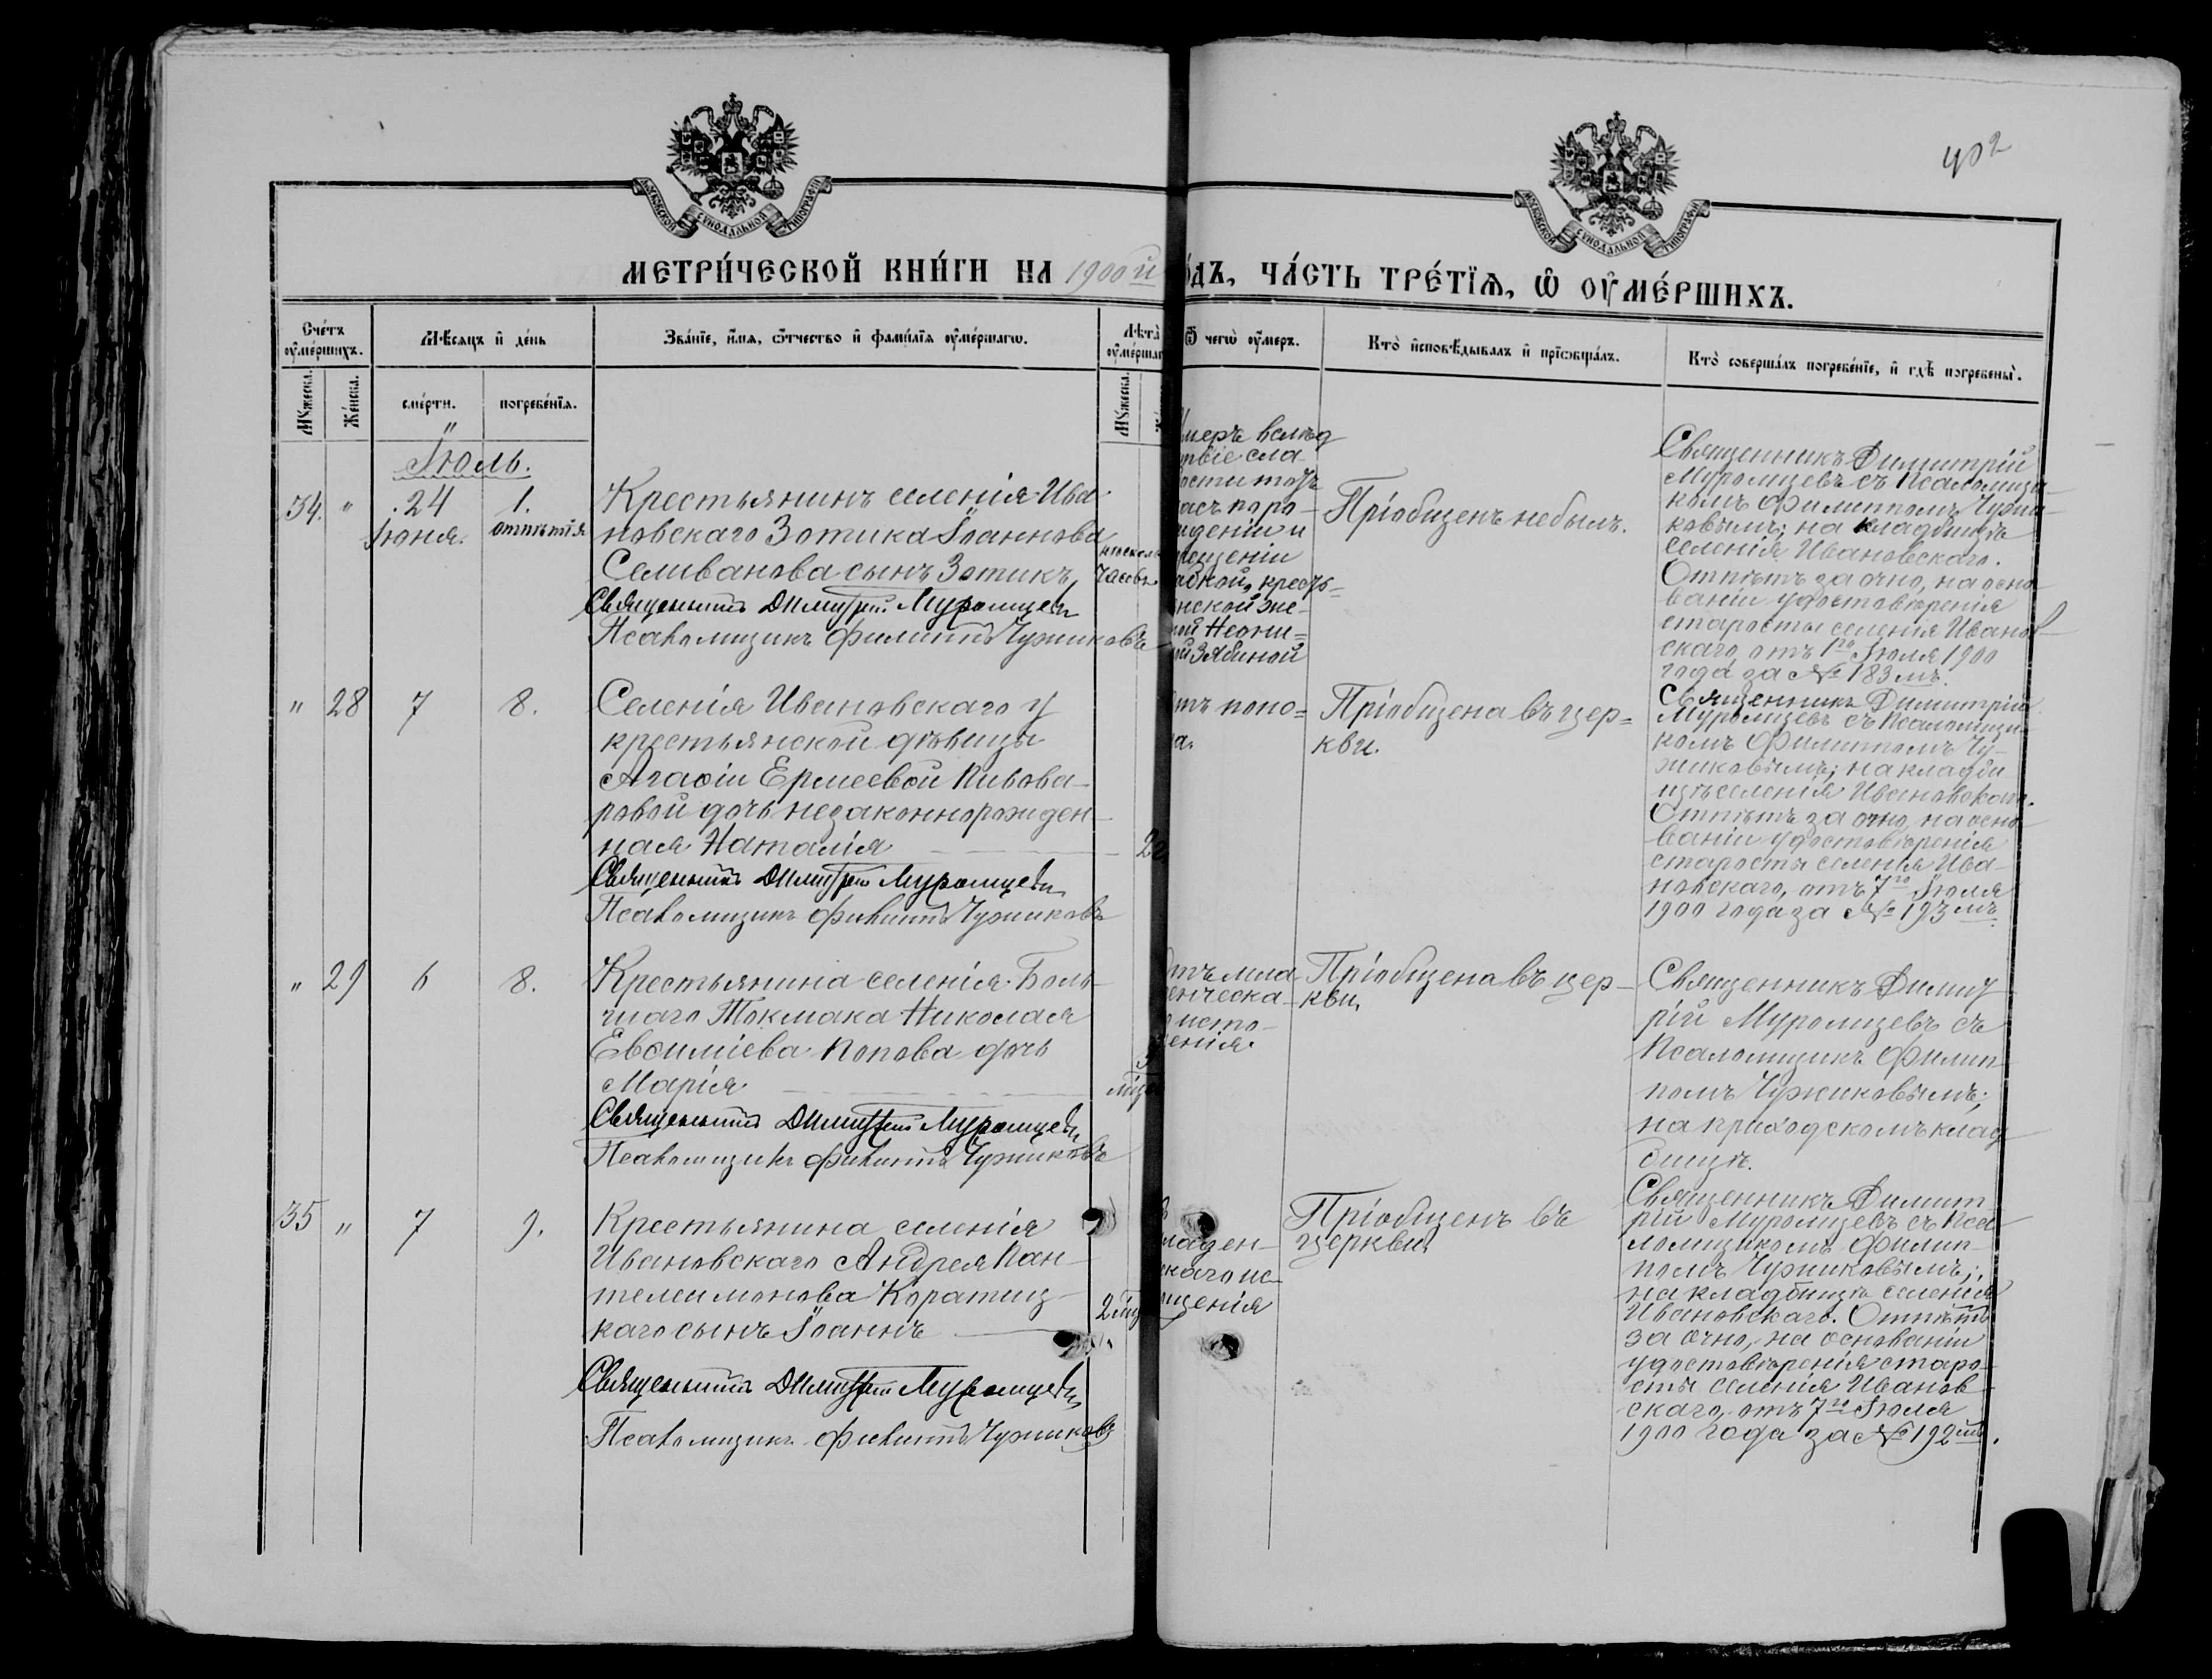 402
МОСКОВСКОЙ СУНОДАЛЬНОЙ ТИПОГРАФІИ
МОСКОВСКОЙ СУНОДАЛЬНОЙ ТИПОГРАФІИ
МЕТРИ́ЧЕСКОЙ КНИ́ГИ НА 1900 й
О́ДЪ, ЧА́СТЬ ТРЕ́ТЇѦ, Ѿ ОУ҆МЕ́РШИХЪ.
Сче́тъ оу҆ме́ршихъ.
Мѣ́сяцъ и҆ де́нь
Зва́нїе, и҆́мѧ, ѻ҆́тчество и҆ фами́лїѧ оу҆ме́ршагѡ.
Лѣта̀ оу҆ме́ршаг
Ѿ чегѡ̀ оу҆́меръ.
Кто̀ и҆сповѣ́дывалъ и҆ прїѡбща́лъ.
Кто̀ соверша́лъ погребе́нїе, и҆ гдѣ̀ погребены̀.
Мꙋ́жеска.
Же́нска.
сме́рти.
погребе́нїѧ.
Мꙋ́жеска.
"
Іюль.
34.
"
24
Іюня.
1.
отпѣтія
Крестьянинъ селенія Ива
новскаго Зотика Іоаннова
Селиванова сынъ Зотикъ,
Священникъ Димитрій Муромцевъ
Псаломщикъ Филиппъ Чужиковъ
часовъ
меръ вслѣд
твіе сла
ости тотъ
асъ по ро
ждении и
рещеніи
абкой, кресть=
нской же=
ой Неони=
ой Зябиной
Пріобщенъ не былъ.
Священникъ Димитрій
Муромцевъ съ Псаломщи
комъ Филиппомъ Чужи
ковымъ; на кладбищѣ
селенія Ивановскаго.
Отпѣтъ за очно, на осно
ваніи удостовѣренія
старосты селенія Иванов
скаго отъ 1го Іюля 1900
года за № 183мъ.
"
28
7
8.
Селенія Ивановскаго у
крестьянской дѣвицы
Агафіи Ермеевой Пивова
ровой дочь незаконнорожден
ная Наталія
Священникъ Димитрій Муромцевъ
Псаломщикъ Филиппъ Чужиковъ
тъ поно=
а.
Пріобщена въ цер=
кви.
Священникъ Димитрій
Муромцевъ съ Псаломщи
комъ Филиппомъ Чу
жиковымъ; на кладби
щѣ селенія Ивановскаго.
Отпѣтъ за очно, на осно
ваніи удостовѣренія
старосты селенія Ива
новскаго, отъ 7го Іюля
1900 года за № 193мъ.
"
29
6
8.
Крестьянина селенія Боль
шаго Токмака Николая
Евѳиміева Попова дочь
Марія
Священникъ Димитрій Муромцевъ
Псаломщикъ Филиппъ Чужиковъ
тъ мла
енческа
исто
енія.
Пріобщена въ цер
кви,
Священникъ Димит
рій Муромцевъ съ
Псаломщикъ Филип
помъ Чужиковымъ;
на приходскомъ клад
бищѣ.
35
"
7
9.
Крестьянина селенія
Ивановскаго Андрея Пан
телеимонова Каратиц
каго сынъ Іоаннъ
Священникъ Димитрій Муромцевъ
Псаломщикъ Филиппъ Чужиковъ
2 мц
ладен
скаго ис
щенія
Пріобщенъ въ
церкви
Священникъ Димит
рій Муромцевъ съ Пса
ломщикомъ Филип
помъ Чужиковымъ;
на кладбищѣ селенія
Ивановскаго. Отпѣтъ
за очно, на основаніи
удостовѣренія старо
сты селенія Иванов
скаго, отъ 7го Іюля
1900 года за № 192мъ.